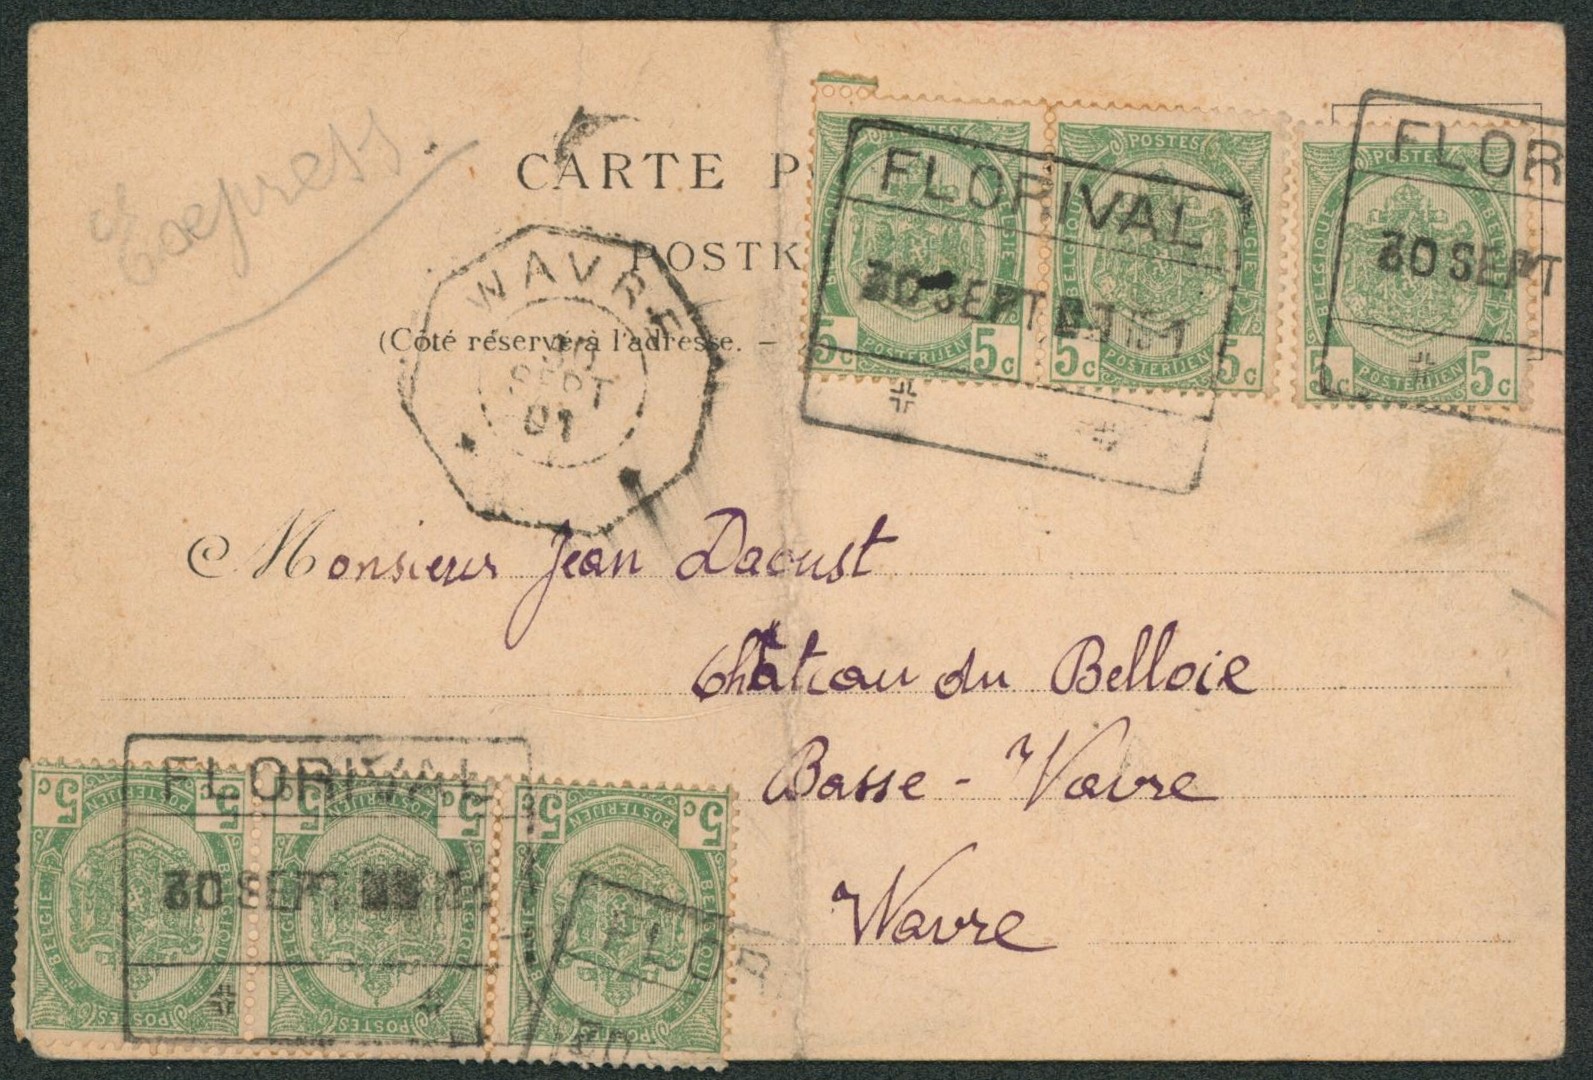 Express.
CARTE P
POSTK
(Côté réservé à l'adresse. –
WAVRE
30
SEPT
01
POSTES
BELGIQUE BELGIE
5c POSTERIJEN 5c
POSTES
BELGIQUE BELGIE
5c POSTERIJEN 5c
POSTES
BELGIQUE BELGIE
5c POSTERIJEN 5c
FLORIVAL
30 SEPT
FLOR
30 SEPT
Monsieur Jean Daoust
Château du Belloie
Basse-Wavre
Wavre
FLORIVAL
30 SEPT
5c POSTERIJEN 5c
BELGIE BELGIQUE
POSTES
5c POSTERIJEN 5c
BELGIE BELGIQUE
POSTES
5c POSTERIJEN 5c
BELGIE BELGIQUE
POSTES
FLOR
30